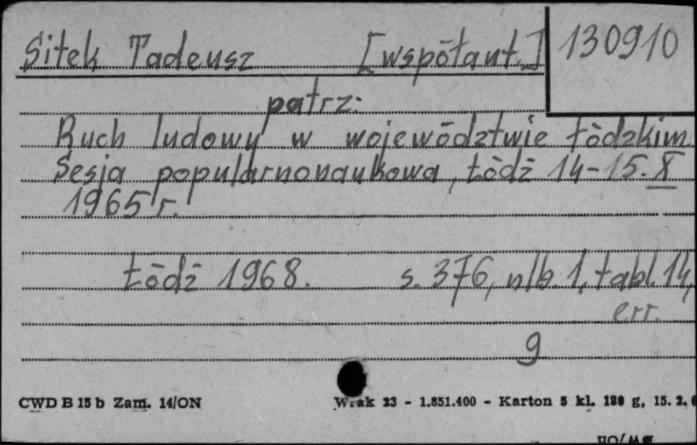 Sitek Tadeusz [współaut.] 130910
patrz:
Ruch ludowy w województwie łódzkim.
Sesja popularnonaukowa, Łódź 14-15.X
1965 r.
Łódź 1968. s. 376, nlb. 1, tabl. 14,
err.
9
CWD B 15 b Zam. 14/ON Wrak 23 - 1.851.400 - Karton 5 kl. 180 g, 15. 2. 6